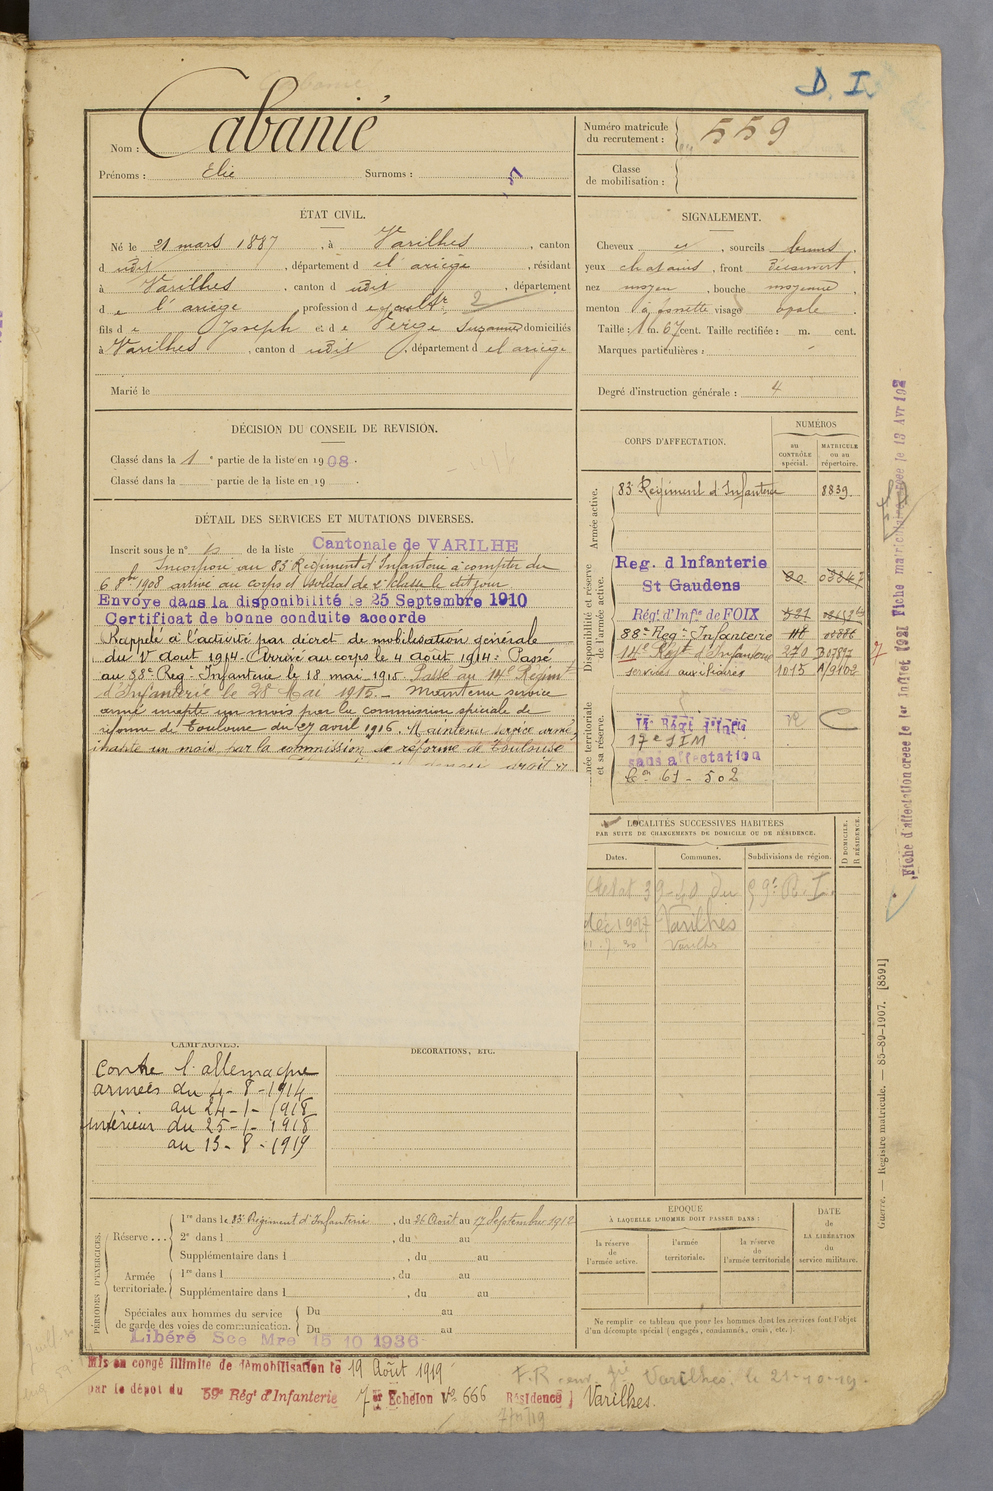 D. I.
Nom : Cabanié
Prénoms : Elie Surnoms :
Numéro matricule du recrutement : 559
Classe de mobilisation :
ÉTAT CIVIL.
Né le 21 mars 1887, à Varilhes, canton
d udit, département d el ariège, résidant
à Varilhes, canton d udit, département
d e l'ariège, profession d
fils d e Joseph et de Verge Suzanne domiciliés
à Varilhes, canton d udit, département d el ariège
Marié le
SIGNALEMENT.
Cheveux et, sourcils bruns,
yeux chatains, front Découvert,
nez moyen, bouche moyenne,
menton à fossette visage ovale.
Taille : 1 m. 67 cent. Taille rectifiée : m. cent.
Marques particulières :
Degré d'instruction générale : 4
DÉCISION DU CONSEIL DE REVISION.
Classé dans la 1e partie de la liste en 1908.
Classé dans la partie de la liste en 19 .
DÉTAIL DES SERVICES ET MUTATIONS DIVERSES.
Inscrit sous le n° de la liste Cantonale de VARILHE
Incorporé au 83e Régiment d'Infanterie à compter du
6 8bre 1908 arrivé au corps et soldat de 2e classe le dit jour
Envoyé dans la disponibilité le 25 Septembre 1910
Certificat de bonne conduite accordé
Rappelé à l'activité par décret de mobilisation générale
du 1er Aout 1914. Arrivé au corps le 4 août 1914. Passé
au 88e Reg. Infanterie le 18 mai 1915. Passé au 14e Régim
d'Infanterie le 28 Mai 1915. Maintenu service
armé inapte un mois par la commission spéciale de
réforme de Toulouse du 27 avril 1916. Maintenu service armé
inapte un mois par la commission de réforme de Toulouse
CORPS D'AFFECTATION.
NUMÉROS
au CONTRÔLE spécial.
MATRICULE ou au répertoire.
Armée active.
83e Régiment d'Infanterie 8839
Disponibilité et réserve de l'armée active.
Reg. d Infanterie
St Gaudens
Rég. d'Inf. de FOIX
88e Reg. Infanterie
14e Regt d'Infanterie 270
services auxiliaires 1015
et sa réserve.
17e SIM
sans affectation
61 - 502
LOCALITÉS SUCCESSIVES HABITÉES
PAR SUITE DE CHANGEMENTS DE DOMICILE OU DE RÉSIDENCE.
Dates. Communes. Subdivisions de région. D DOMICILE. R RÉSIDENCE.
déc 1927 Varilhes
Varilhes
CAMPAGNES.
contre l'allemagne
armées du 4-8-1914
au 24-1-1918
intérieur du 25-1-1918
au 13-8-1919
DÉCORATIONS, ETC.
PÉRIODES D'EXERCICES.
Réserve ...
1re dans le 83e Régiment d'Infanterie, du 26 Août au 17 Septembre 1912
2e dans l , du au
Supplémentaire dans l , du au
Armée territoriale.
1re dans l , du au
Supplémentaire dans l , du au
Spéciales aux hommes du service de garde des voies de communication.
Du au
Du au
Libéré Sce Mre 15 10 1936
EPOQUE
À LAQUELLE L'HOMME DOIT PASSER DANS :
la réserve de l'armée active.
l'armée territoriale.
la réserve de l'armée territoriale
DATE de LA LIBÉRATION du service militaire.
Ne remplir ce tableau que pour les hommes dont les services font l'objet
d'un décompte spécial (engagés, condamnés, omis, etc.).
Mis en congé illimité de démobilisation le 19 Août 1919
par le dépôt du 59e Régt d'Infanterie 7er Echelon No 666 Résidence } Varilhes.
Varilhes, le 21-10-19.
Fiche d'affectation créée le 1er
Fiche matriculaire
Guerre. — Registre matricule. — 85-89-1907. [8591]